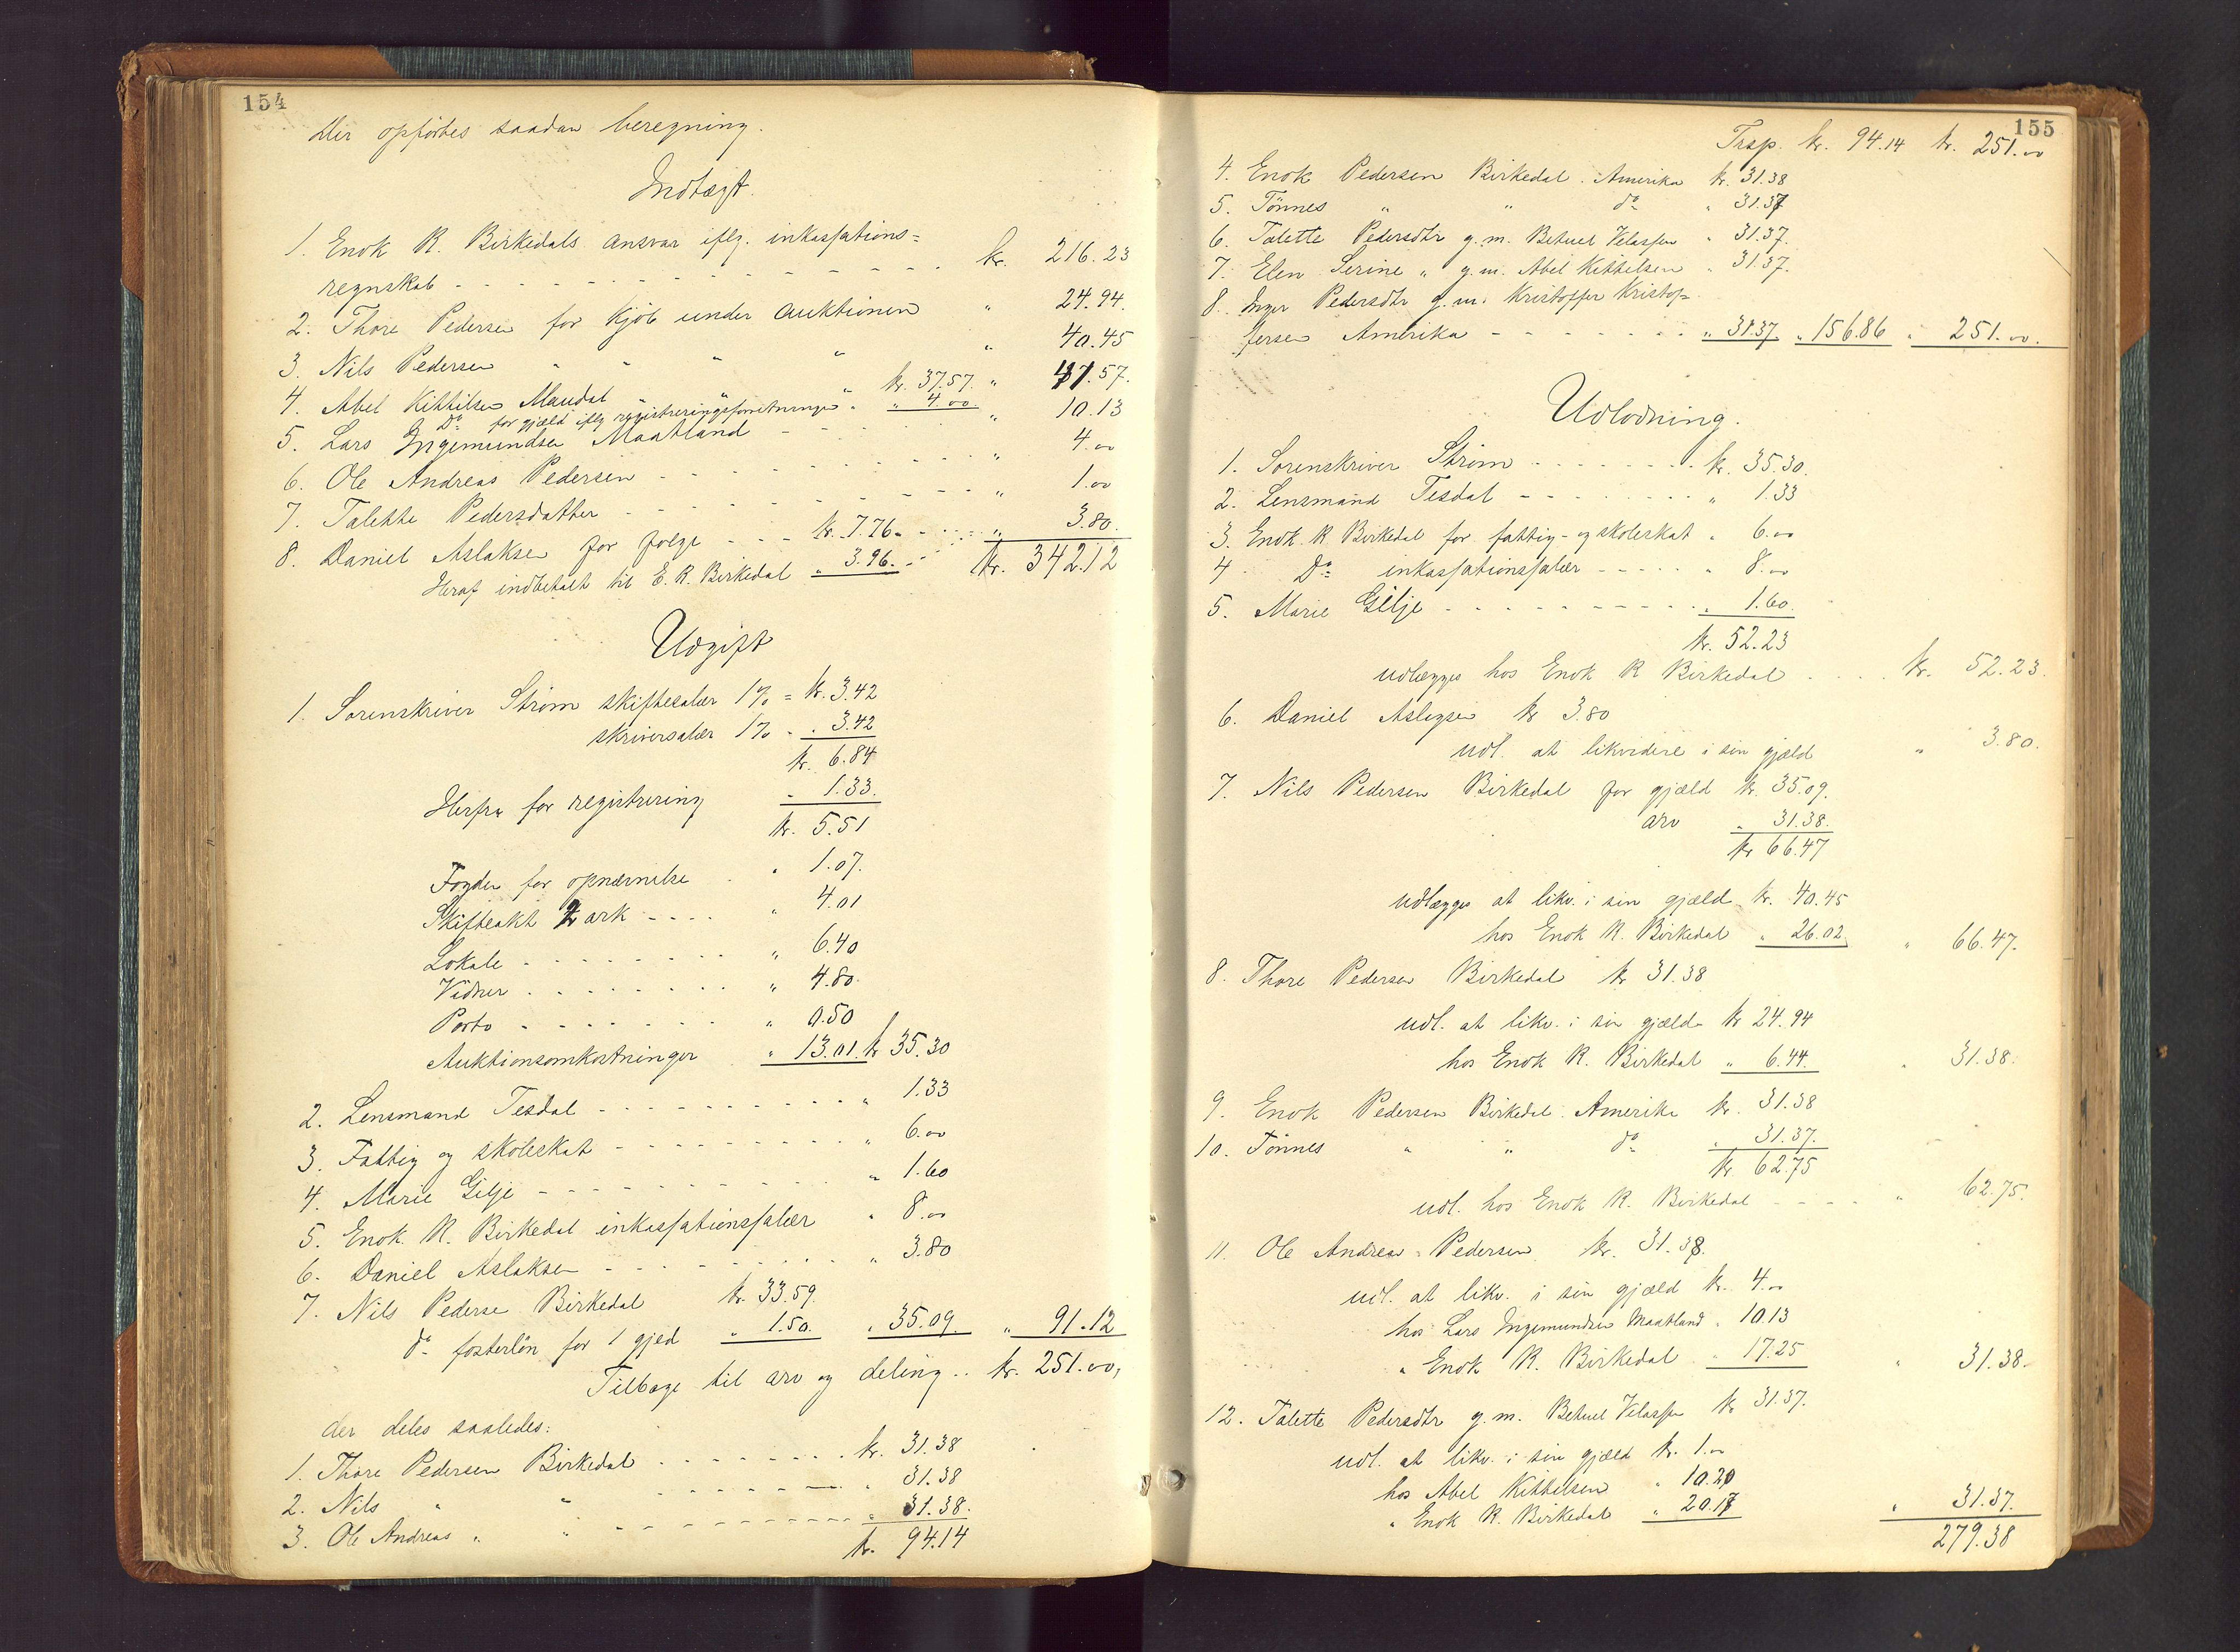 154
Der opførtes saadan beregning.
Indtægt.
1. Enok R. Birkedals ansvar iflg. inkassations=
regnskab - - - - - - - - - - kr. 216.23
2. Thore Pedersen for kjøb under auktionen " 24.94.
3. Nils Pedersen " " " " 40.45
4. Abel Kittilsen Maudal " " " kr. 37.57. " 41.57.
Do for gjæld iflg registreringsforretningen " 4.00
5. Lars Ingemundsen Maatland - - - " 10.13
6. Ole Andreas Pedersen - - - - - " 4.00
7. Talette Pedersdatter - - - - - " 1.00
8. Daniel Aslaksen for følge - - - kr. 7.76 - - - " 3.80.
Heraf indbetalt til E. R. Birkedal " 3.96. - kr. 342.12
Udgift
1. Sorenskriver Strøm skiftesalær 1% = kr. 3.42
skriversalær 1% - " 3.42
kr. 6.84
Herfra for registrering - 1.33.
kr. 5.51
Fogden for opnævnelse . " 1.07.
Skifteakt 2 ark - - - - " 4.01
Lokale - - - - - - - - " 6.40
Vidner - - - - - - - - " 4.80.
Porto - - - - - - - " 0.50
Auktionsomkostninger " 13.01. kr 35.30
2. Lensmand Tesdal - - - - - - - - - - " 1.33
3. Fattig og skoleskat - - - - - - - - - " 6.00
4. Marie Gilje - - - - - - - - - - - " 1.60
5. Enok R. Birkedal inkassationssalær " 8.00
6. Daniel Aslaksen - - - - - - - - - " 3.80
7. Nils Pederse Birkedal kr. 33.59.
do fosterløn for 1 gjed " 1.50. " 35.09. " 91.12
Tilbage til arv og deling .. kr. 251.00,
der deles saaledes:
1. Thore Pedersen Birkedal - - - - - - - kr. 31.38
2. Nils " " - - - - - - - " 31.38
3. Ole Andreas " " - - - - - - - " 31.38.
kr. 94.14
155
Trsp. kr. 94.14 kr. 251.00
4. Enok Pedersen Birkedal. Amerika kr. 31.38
5. Tønnes " " do " 31.37
6. Talette Pedersdtr g. m. Betuel Velassen " 31.37.
7. Elen Serine " g. m. Abel Kittilsen " 31.37.
8. Inger Pedersdtr g. m. Kristoffer Kristof=
fersen Amerika - - - - - - - - " 31.37 " 156.86 " 251.00.
Udlodning.
1. Sorenskriver Strøm - - - - - - - kr. 35.30.
2. Lensmand Tesdal - - - - - - - - " 1.33
3. Enok R Birkedal for fattig- og skoleskat " 6.00
4 Do inkassationssalær - - - - - " 8.00
5. Marie Gilje - - - - - - - - - - " 1.60.
kr. 52.23
udlægges hos Enok R Birkedal . . . . kr. 52.23.
6. Daniel Aslagsen kr 3.80
udl. at likvidere i sin gjæld " 3.80.
7. Nils Pedersen Birkedal for gjæld kr. 35.09.
arv " 31.38.
kr 66.47
udlægges at likv. i sin gjæld kr. 40.45
hos Enok R. Birkedal " 26.02. " 66.47.
8. Thore Pedersen Birkedal kr 31.38
udl. at likv. i sin gjæld kr 24.94
hos Enok R. Birkedal " 6.44. " 31.38.
9. Enok Pedersen Birkedal. Amerika kr. 31.38
10. Tønnes " " do " 31.37.
kr. 62.75
udl. hos Enok R. Birkedal - - - - " 62.75.
11. Ole Andreas Pedersen kr. 31.38.
udl. at likv. i sin gjæld kr. 4.00
hos Lars Ingemundsen Maatland " 10.13
" Enok R. Birkedal " 17.25 " 31.38.
12. Talette Pedersdtr g. m. Betuel Velassen kr 31.37.
udl. at likv. i sin gjæld kr. 1.00
hos Abel Kittilsen " 10.20
" Enok R. Birkedal " 20.17 " 31.37.
279.38